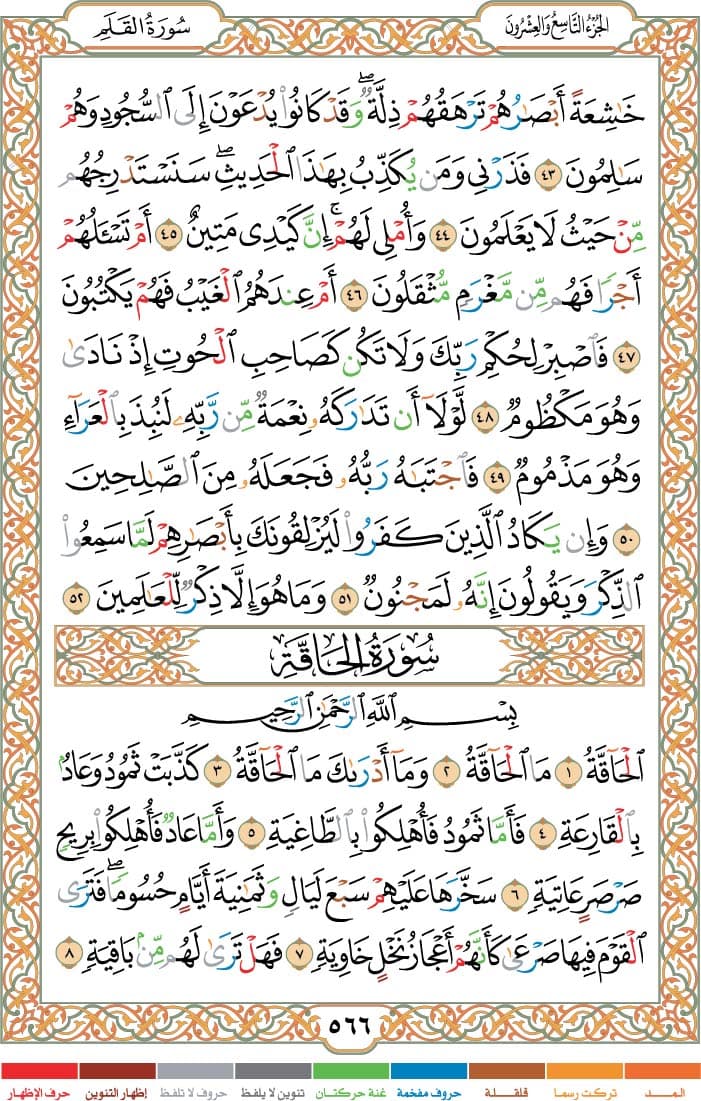 الجزء التاسع والعشرون
سورة القلم
خَٰشِعَةً أَبْصَٰرُهُمْ تَرْهَقُهُمْ ذِلَّةٌ ۖ وَقَدْ كَانُوا۟ يُدْعَوْنَ إِلَى ٱلسُّجُودِ وَهُمْ
سَٰلِمُونَ ٤٣ فَذَرْنِى وَمَن يُكَذِّبُ بِهَٰذَا ٱلْحَدِيثِ ۖ سَنَسْتَدْرِجُهُم
مِّنْ حَيْثُ لَا يَعْلَمُونَ ٤٤ وَأُمْلِى لَهُمْ ۚ إِنَّ كَيْدِى مَتِينٌ ٤٥ أَمْ تَسْـَٔلُهُمْ
أَجْرًا فَهُم مِّن مَّغْرَمٍ مُّثْقَلُونَ ٤٦ أَمْ عِندَهُمُ ٱلْغَيْبُ فَهُمْ يَكْتُبُونَ
٤٧ فَٱصْبِرْ لِحُكْمِ رَبِّكَ وَلَا تَكُن كَصَاحِبِ ٱلْحُوتِ إِذْ نَادَىٰ
وَهُوَ مَكْظُومٌ ٤٨ لَّوْلَآ أَن تَدَٰرَكَهُۥ نِعْمَةٌ مِّن رَّبِّهِۦ لَنُبِذَ بِٱلْعَرَآءِ
وَهُوَ مَذْمُومٌ ٤٩ فَٱجْتَبَٰهُ رَبُّهُۥ فَجَعَلَهُۥ مِنَ ٱلصَّٰلِحِينَ
٥٠ وَإِن يَكَادُ ٱلَّذِينَ كَفَرُوا۟ لَيُزْلِقُونَكَ بِأَبْصَٰرِهِمْ لَمَّا سَمِعُوا۟
ٱلذِّكْرَ وَيَقُولُونَ إِنَّهُۥ لَمَجْنُونٌ ٥١ وَمَا هُوَ إِلَّا ذِكْرٌ لِّلْعَٰلَمِينَ ٥٢
سورة الحاقة
بِسْمِ ٱللَّهِ ٱلرَّحْمَٰنِ ٱلرَّحِيمِ
ٱلْحَآقَّةُ ١ مَا ٱلْحَآقَّةُ ٢ وَمَآ أَدْرَىٰكَ مَا ٱلْحَآقَّةُ ٣ كَذَّبَتْ ثَمُودُ وَعَادٌۢ
بِٱلْقَارِعَةِ ٤ فَأَمَّا ثَمُودُ فَأُهْلِكُوا۟ بِٱلطَّاغِيَةِ ٥ وَأَمَّا عَادٌ فَأُهْلِكُوا۟ بِرِيحٍ
صَرْصَرٍ عَاتِيَةٍ ٦ سَخَّرَهَا عَلَيْهِمْ سَبْعَ لَيَالٍ وَثَمَٰنِيَةَ أَيَّامٍ حُسُومًا ۖ فَتَرَى
ٱلْقَوْمَ فِيهَا صَرْعَىٰ كَأَنَّهُمْ أَعْجَازُ نَخْلٍ خَاوِيَةٍ ٧ فَهَلْ تَرَىٰ لَهُم مِّنۢ بَاقِيَةٍ ٨
٥٦٦
المـــد تركت رسما قلقـلـة حروف مفخمة غنة حركتان تنوين لا يلفظ حروف لا تلفظ إظهار التنوين حرف الإظهار